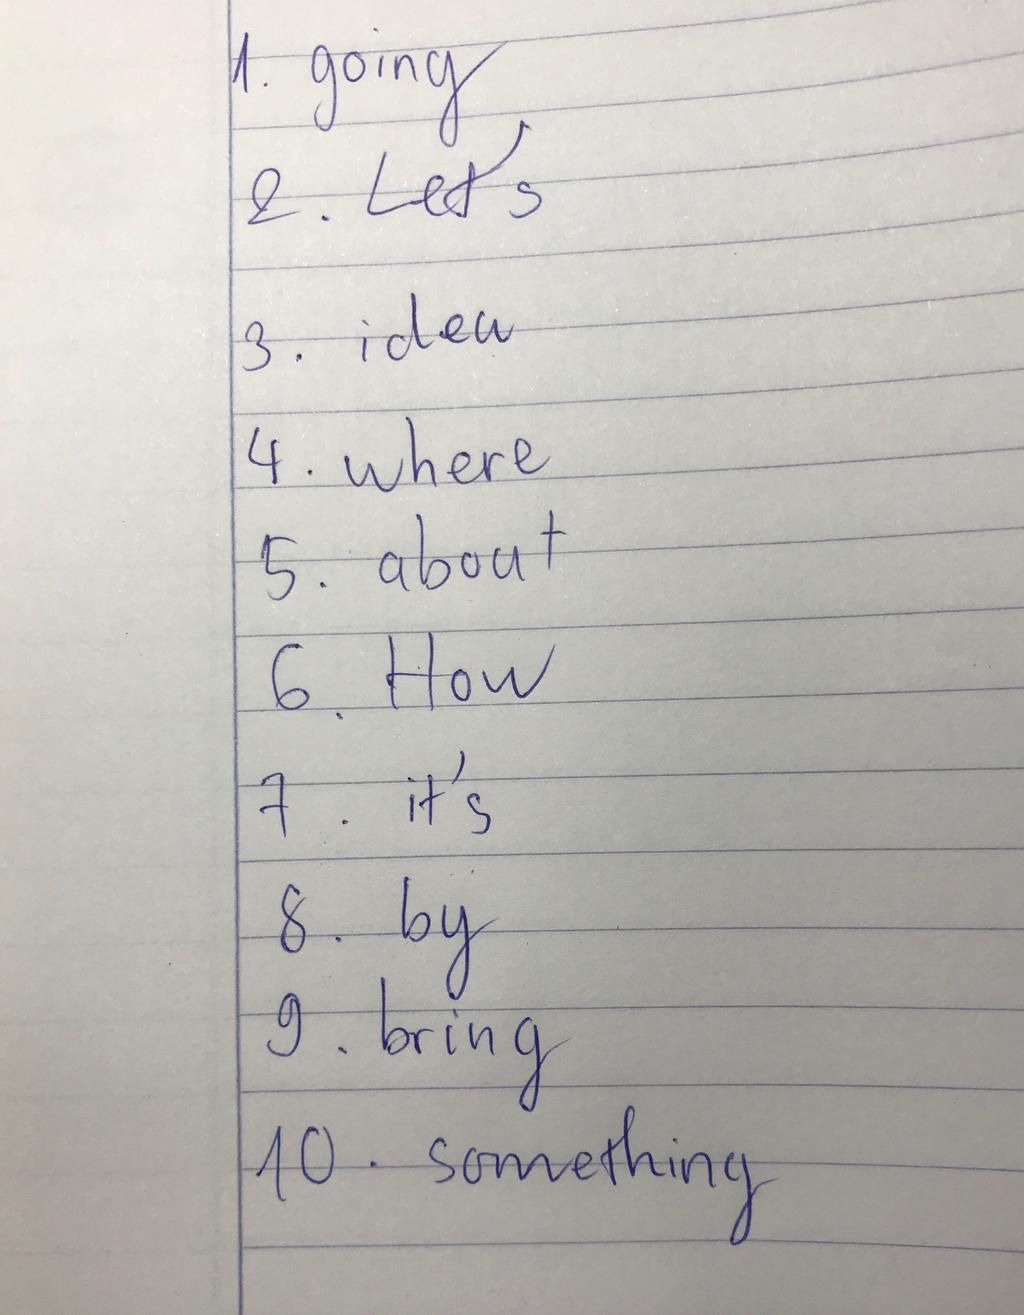 1. going
2. Let's
3. idea
4. where
5. about
6. How
7. it's
8. by
9. bring
10. something